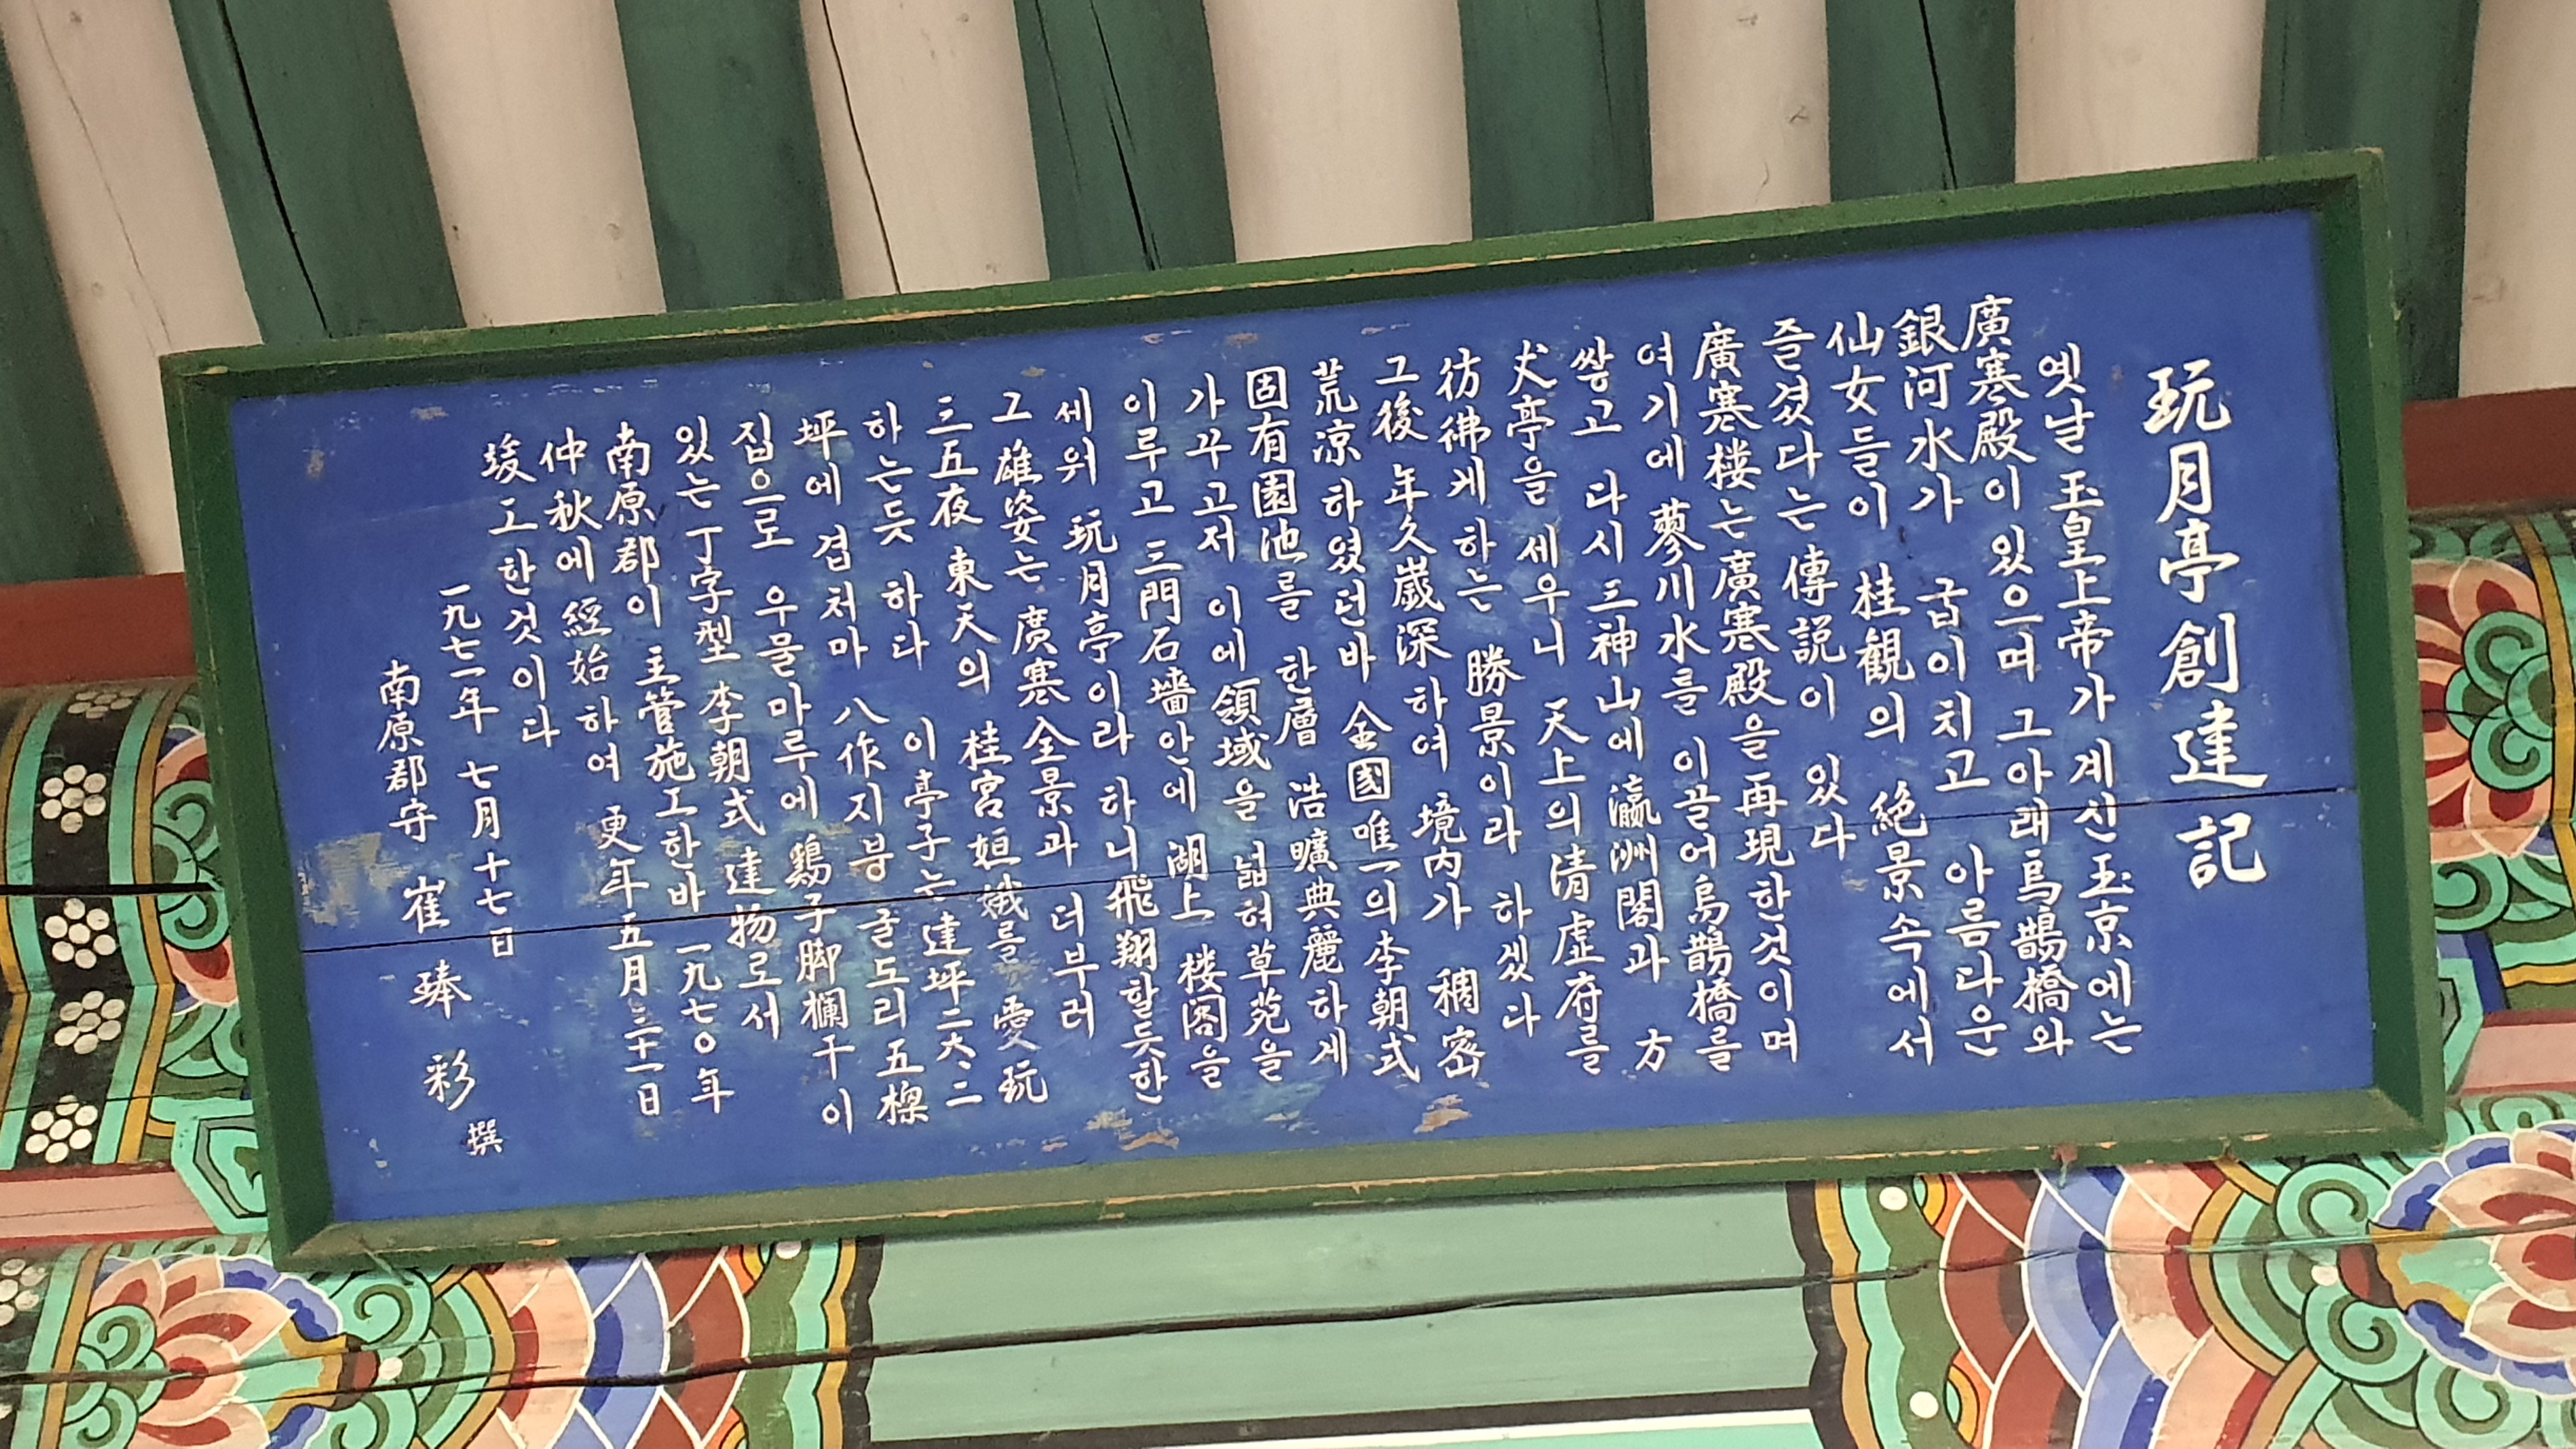 玩月亭創建記
옛날 玉皇上帝가 계신 玉京에는
廣寒殿이 있으며 그아래 烏鵲橋와
銀河水가 굽이치고 아름다운
仙女들이 桂観의 絶景속에서
즐겼다는 傳説이 있다
廣寒楼는 廣寒殿을 再現한것이며
여기에 蓼川水를 이끌어 烏鵲橋를
쌓고 다시 三神山에 瀛洲閣과 方
丈亭을 세우니 天上의 清虛府를
彷彿케하는 勝景이라 하겠다
그後 年久歲深하여 境内가 稠密
荒凉하였던바 全國唯一의 李朝式
固有園池를 한層 浩曠典麗하게
가꾸고저 이에 領域을 넓혀 草苑을
이루고 三門石墻안에 湖上 楼阁을
세워 玩月亭이라 하니 飛翔할듯한
그 雄姿는 廣寒全景과 더부러
三五夜 東天의 桂宮姮娥를 愛玩
하는듯 하다 이亭子는 建坪二六.二
坪에 겹처마 八作지붕 굴도리 五樑
집으로 우물마루에 鷄子脚欄干이
있는 丁字型 李朝式 建物로서
南原郡이 主管施工한바 一九七〇年
仲秋에 經始하여 更年五月三十一日
竣工한것이다
一九七一年 七月十七日
南原郡守 崔 瑧 彩 撰